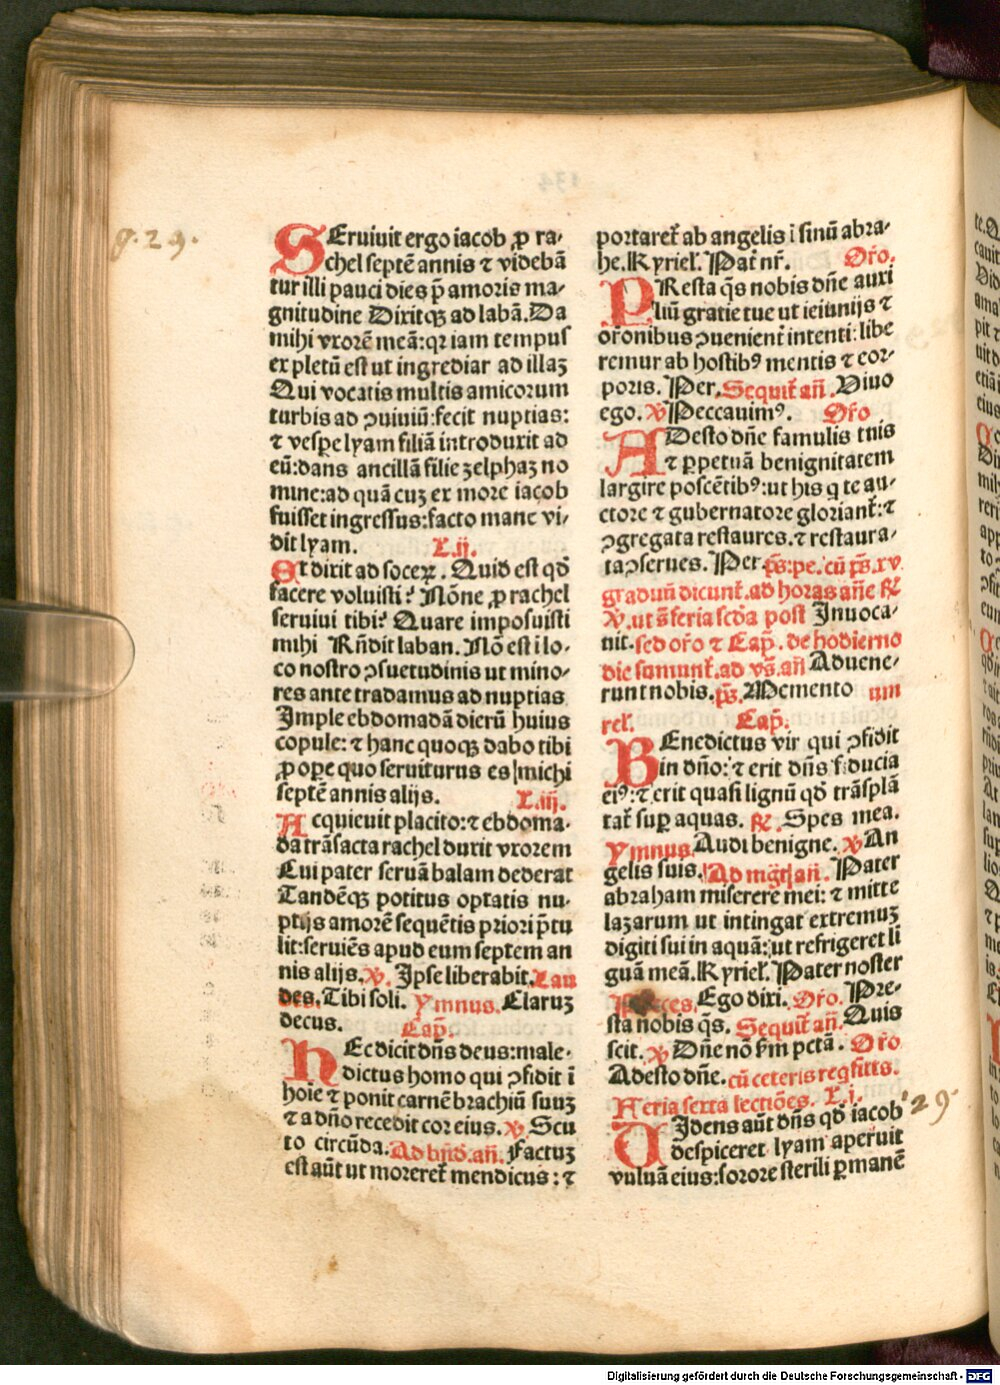 g. 29.
SEruiuit ergo iacob ꝓ ra-
chel septē annis ⁊ videbā
tur illi pauci dies p̄ amoris ma-
gnitudine Dixitqꝫ ad labā. Da
mihi vxorē meā: qꝛ iam tempus
expletū est ut ingrediar ad illaꝫ
Qui vocatis multis amicorum
turbis ad ꝯuiuiū: fecit nuptias:
⁊ vespe lyam filiā introduxit ad
eū: dans ancillā filie ꝫelphaꝫ no
mine: ad quā cuꝫ ex more iacob
fuisset ingressus: facto mane vi-
dit lyam. L. ij.
Et dixit ad soceꝝ. Quid est qď
facere voluisti? Nōne ꝓ rachel
seruiui tibi? Quare imposuisti
mihi Rn̄dit laban. Nō est i lo-
co nostro ꝯsuetudinis ut mino-
res ante tradamus ad nuptias
Imple ebdomadā dierū huius
copule: ⁊ hanc quoqꝫ dabo tibi
ꝓ ope quo seruiturus es michi
septē annis alijs. L. iij.
Acquieuit placito: ⁊ ebdoma-
da trāsacta rachel duxit vxorem
Cui pater seruā balam dederat
Tandēqꝫ potitus optatis nu-
ptijs amorē sequētis priori p̄tu
lit: seruiēs apud eum septem an
nis alijs. ℣. Ipse liberabit. Lau
des. Tibi soli. Ymnus. Claruꝫ
decus. Cap̄.
HEc dicit dn̄s deus: male-
dictus homo qui ꝯfidit ī
hoīe ⁊ ponit carnē brachiū suuꝫ
⁊ a dn̄o recedit cor eius. ℣ Scu
to circūda. Ad bn̄d. an̄. Factuꝫ
est aūt ut morereť mendicus: ⁊
portareť ab angelis i sinū abra-
he. Kyrieł. Pať nr̄. Or̄o.
PResta q̄s nobis dn̄e auxi
liū gratie tue ut ieiunijs ⁊
orōnibus ꝯuenienť intenti: libe
remur ab hostibꝰ mentis ⁊ cor-
poris. Per. Sequiť an̄. Viuo
ego. ℣ Peccauimꝰ. Or̄o
ADesto dn̄e famulis tuis
⁊ ꝑpetuā benignitatem
largire poscētibꝰ: ut his q te au-
ctore ⁊ gubernatore glorianť: ⁊
ꝯgregata restaures. ⁊ restaura-
ta ꝯserues. Per. ps̄: pe. cū ps̄. xv
graduū dicunť. ad horas an̄e ℟
℣. ut s̄ feria scd̄a post Inuoca-
uit. sed or̄o ⁊ Cap̄. de hodierno
die sumunť. ad vs̄. an̄ Aduene-
runt nobis. ps̄. Memento um
rel. Cap̄.
BEnedictus vir qui ꝯfidit
in dn̄o: ⁊ erit dn̄s fiducia
eiꝰ: ⁊ erit quasi lignū qď trāsplā
tať sup aquas. ℟. Spes mea.
Ymnus. Audi benigne. ℣ An
gelis suis. Ad mgt̄ an̄. Pater
abraham miserere mei: ⁊ mitte
laꝫarum ut intingat extremuꝫ
digiti sui in aquā: ut refrigeret li
guā meā. Kyrieł. Pater noster
Preces. Ego dixi. Or̄o. Pre-
sta nobis q̄s. Sequiť an̄. Quis
scit. ℣ Dn̄e nō s̄m pctā. Or̄o
Adesto dn̄e. cū ceteris reqsitis.
Feria sexta lectiōes. L. i.
UIdens aūt dn̄s qď iacob 29.
despiceret lyam aperuit
vuluā eius: sorore sterili ꝑmanē
Digitalisierung gefördert durch die Deutsche Forschungsgemeinschaft - DFG